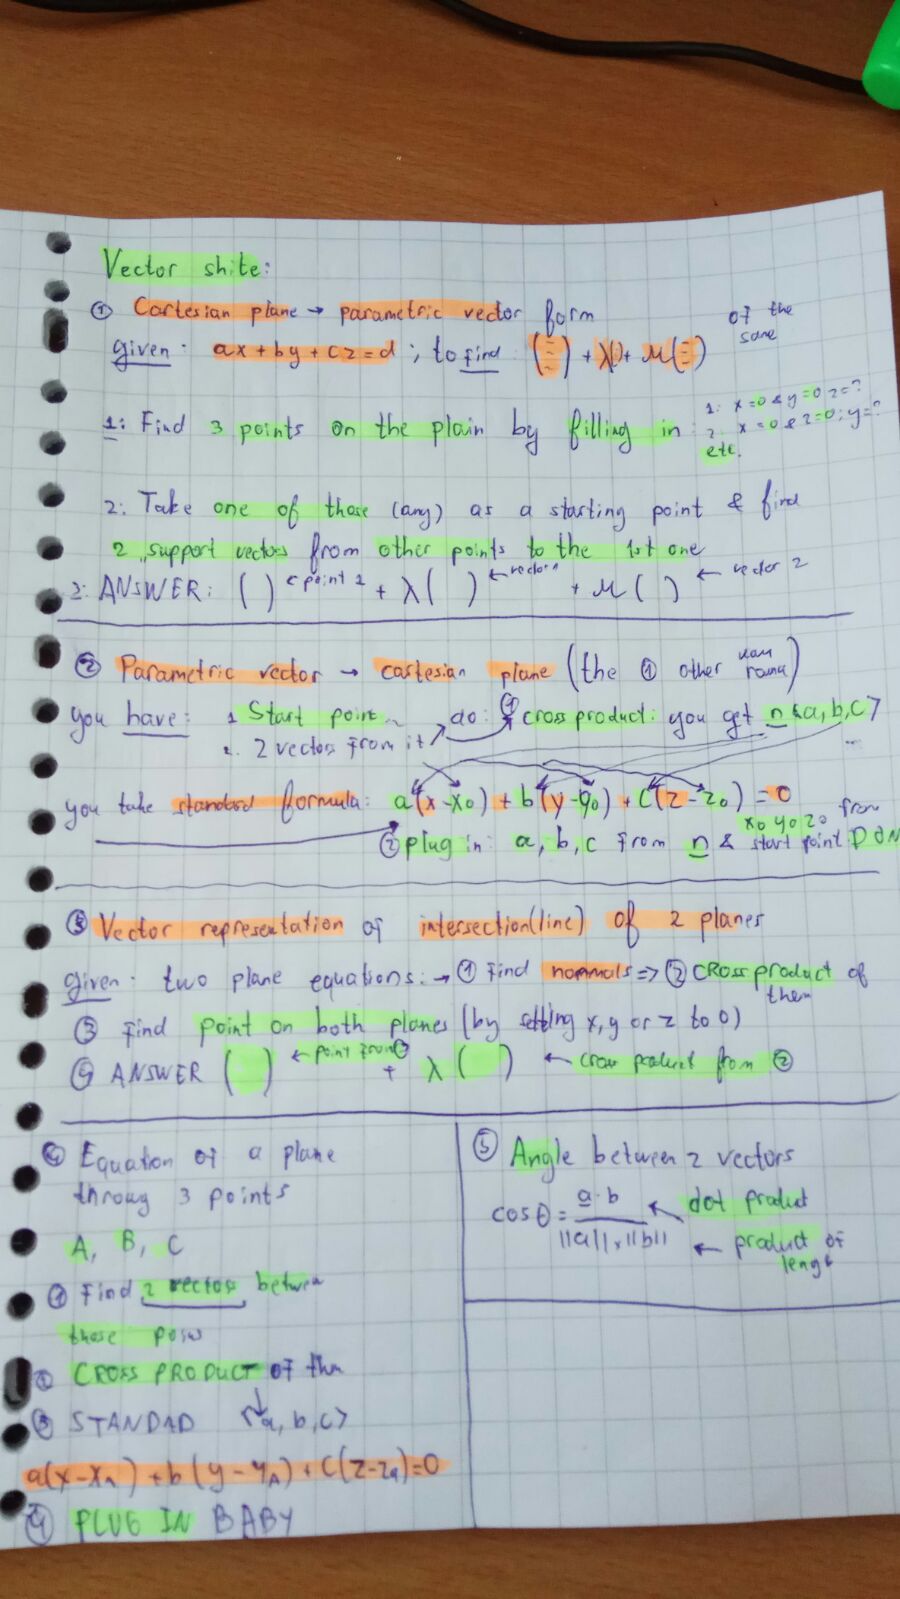 Vector shite:
① Cartesian plane → parametric vector form of the same
given: ax + by + cz = d ; to find (Ξ) + λ() + μ(Ξ)
1: Find 3 points on the plain by filling in: 1: x=0 & y=0 z=?
2. x=0 & z=0; y=?
etc.
2: Take one of those (any) as a starting point & find
2 support vectors from other points to the 1st one
3: ANSWER: ( ) ← point 1 + λ ( ) ← vector 1 + μ ( ) ← vector 2
② Parametric vector → cartesian plane (the ① other way round)
you have: 1 Start point
2. 2 vectors from it
do: ① cross product: you get n <a, b, c>
you take standard formula: a(x-x₀) + b(y-y₀) + c(z-z₀) = 0
② plug in: a, b, c from n & x₀ y₀ z₀ from start point DON
③ Vector representation of intersection (line) of 2 planes
given: two plane equations: → ① Find normals => ② CROSS product of them
③ Find point on both planes (by setting x, y or z to 0)
④ ANSWER ( ) ← point from ③ + λ ( ) ← cross product from ②
④ Equation of a plane
throug 3 points
A, B, C
① Find 2 vectors between
those poins
② CROSS PRODUCT of them
③ STANDAD <a, b, c>
a(x-xₐ) + b(y-yₐ) + c(z-zₐ) = 0
④ PLUG IN BABY
⑤ Angle between 2 vectors
cosθ = a·b / ||a||·||b|| ← dot product
← product of
lengt